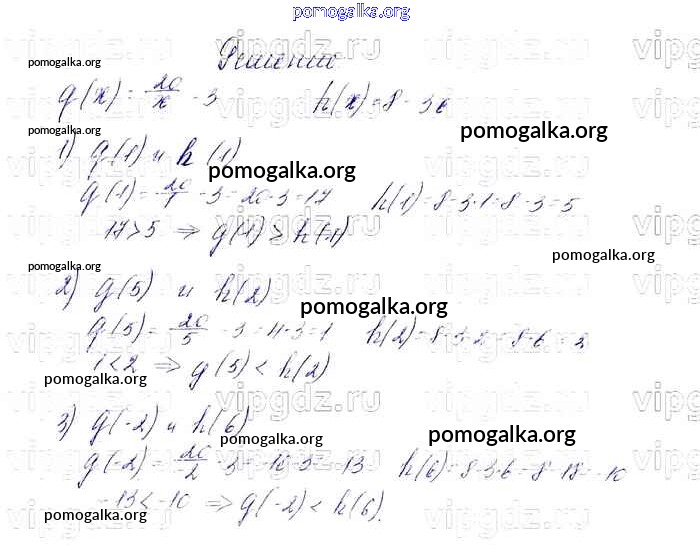 pomogalka.org
Решение
pomogalka.org
g(x) = 20/x - 3    h(x) = 8 - 3x
pomogalka.org
pomogalka.org
1) g(1) и h(1)
pomogalka.org
g(1) = 20/1 - 3 = 20 - 3 = 17    h(1) = 8 - 3·1 = 8 - 3 = 5
17 > 5 ⇒ g(1) > h(1)
pomogalka.org
pomogalka.org
2) g(5) и h(2)
pomogalka.org
g(5) = 20/5 - 3 = 4 - 3 = 1    h(2) = 8 - 3·2 = 8 - 6 = 2
1 < 2 ⇒ g(5) < h(2)
pomogalka.org
3) g(-2) и h(6)
pomogalka.org
pomogalka.org
g(-2) = 20/-2 - 3 = -10 - 3 = -13    h(6) = 8 - 3·6 = 8 - 18 = -10
-13 < -10 ⇒ g(-2) < h(6).
pomogalka.org
vipgdz.ru